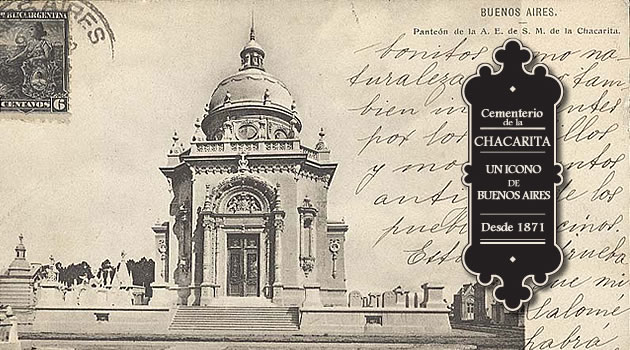 REPUBLICA ARGENTINA
CENTAVOS 6
BUENOS AIRES.
Panteón de la A. E. de S. M. de la Chacarita.
bonitos como na-
turaleza tam
bien
por los
y mo
anti de los
pueb
Est
que mi
Salomé
habrá
Cementerio
de la
CHACARITA
UN ICONO
DE
BUENOS AIRES
Desde 1871